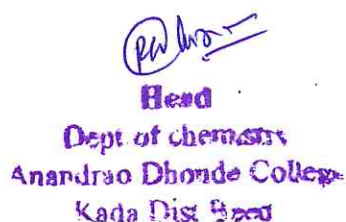 Head
Dept of chemistry
Anandrao Dhonde College
Kada Dist Beed